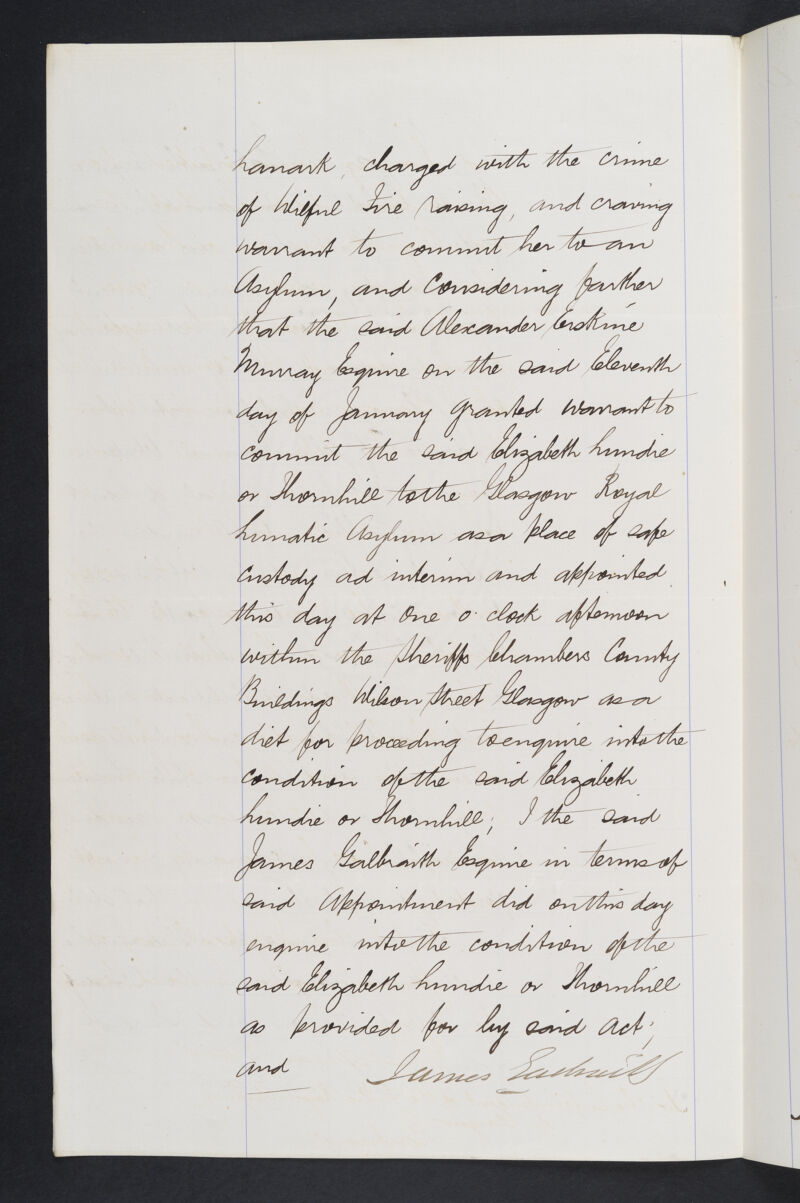 Lanark, charged with the crime
of Wilful Fire raising, and craving
warrant to commit her to an
Asylum, and Considering farther
that the said Alexander Erskine
Murray Esquire on the said Eleventh
day of January granted warrant to
commit the said Elizabeth Lundie
or Thornhill to the Glasgow Royal
Lunatic Asylum as a place of safe
custody ad interim and appointed
this day at One o'clock afternoon
within the Sheriffs Chambers County
Buildings Wilson Street Glasgow as a
diet for proceeding to enquire into the
condition of the said Elizabeth
Lundie or Thornhill; I the said
James Galbraith Esquire in terms of
said Appointment did on this day
enquire into the condition of the
said Elizabeth Lundie or Thornhill
as provided for by said Act;
and James Galbraith